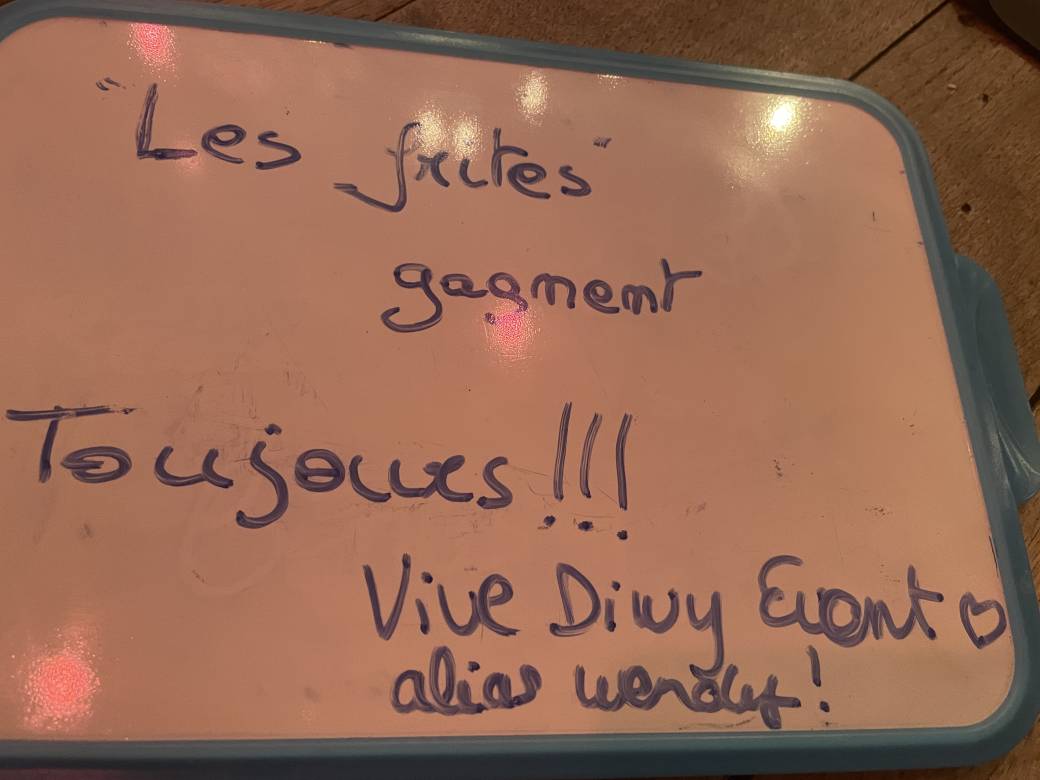 "Les frites"
gagnent
Toujours !!!
Vive Diwy Event ♡
alias wendy !